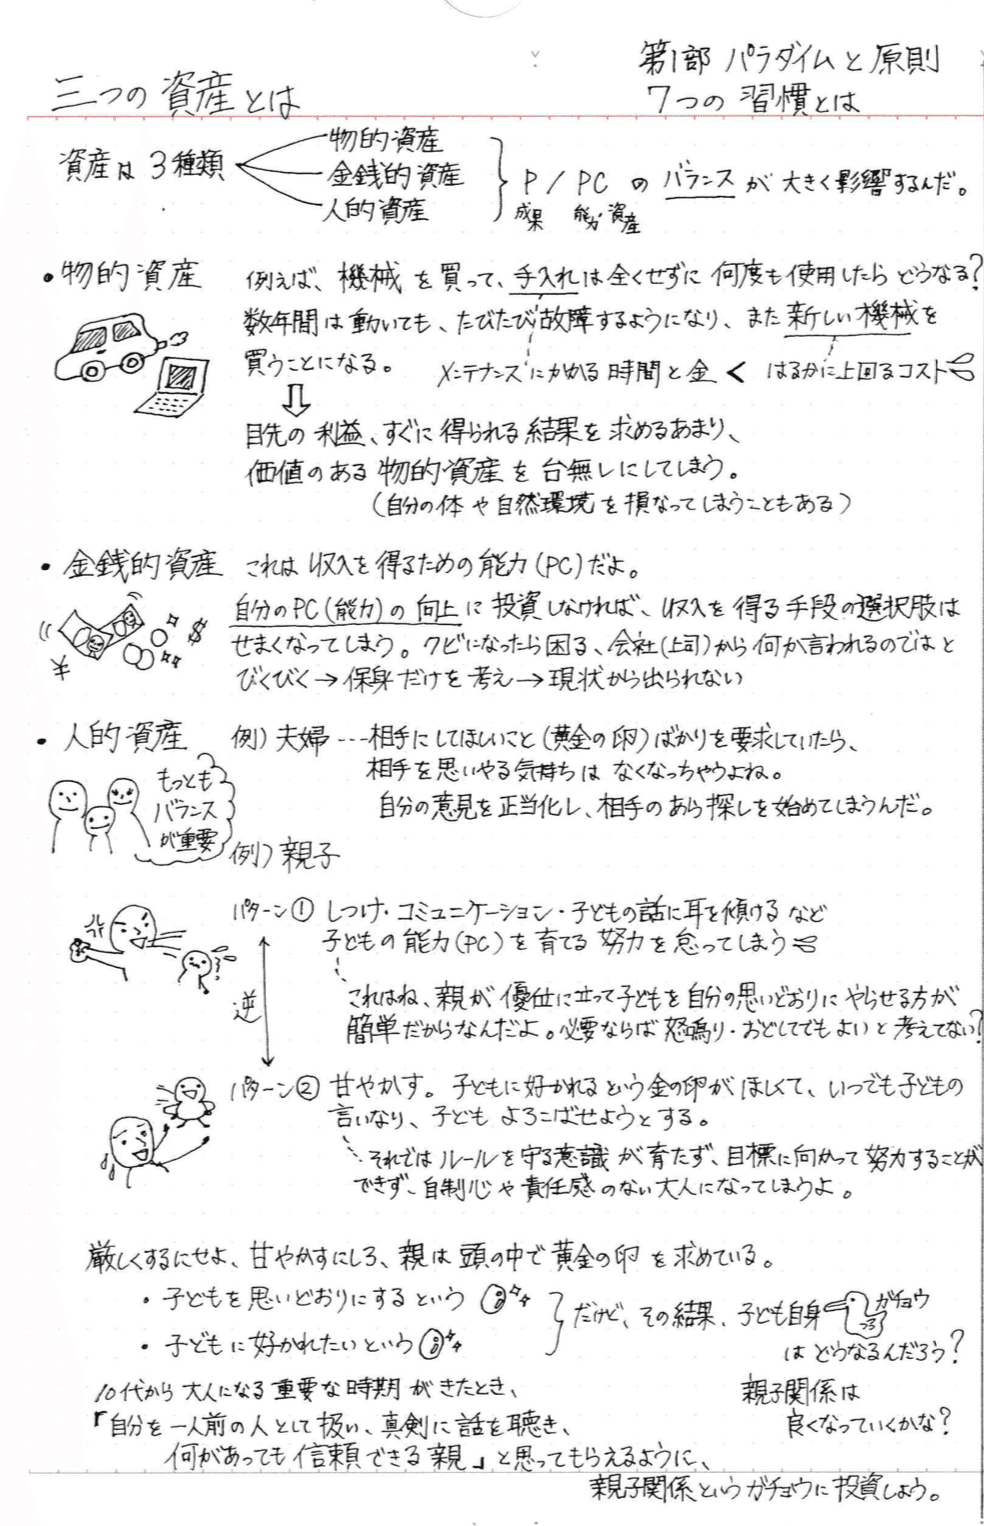 第1部 パラダイムと原則
三つの資産とは
7つの習慣とは
資産は3種類
物的資産
金銭的資産
人的資産
P / PC の バランス が 大きく影響するんだ。
成果 能力・資産
・物的資産
例えば、機械 を 買って、手入れは全くせずに 何度も使用したら どうなる?
数年間は動いても、たびたび故障するようになり、また新しい機械を
買うことになる。
メンテナンスにかかる時間と金 < はるかに上回るコスト
目先の利益、すぐに得られる結果を求めるあまり、
価値のある物的資産を台無しにしてしまう。
(自分の体や自然環境を損なってしまうこともある)
・金銭的資産
これは収入を得るための能力(PC)だよ。
自分のPC(能力)の向上に投資しなければ、収入を得る手段の選択肢は
せまくなってしまう。クビになったら困る、会社(上司)から何か言われるのではと
びくびく→保身だけを考え→現状から出られない
¥ $
・人的資産
例) 夫婦---相手にしてほしいこと(黄金の卵)ばかりを要求していたら、
相手を思いやる気持ちは なくなっちゃうよね。
自分の意見を正当化し、相手のあら探しを始めてしまうんだ。
もっとも
バランス
が重要
例) 親子
パターン① しつけ・コミュニケーション・子どもの話に耳を傾けるなど
子どもの能力(PC)を育てる努力を怠ってしまう
これはね、親が優位に立って子どもを自分の思いどおりにやらせる方が
簡単だからなんだよ。必要ならば怒鳴り・おどしてでもよいと考えてない?
逆
パターン② 甘やかす。子どもに好かれるという金の卵がほしくて、いつでも子どもの
言いなり、子どもよろこばせようとする。
それではルールを守る意識が育たず、目標に向かって努力することが
できず、自制心や責任感のない大人になってしまうよ。
厳しくするにせよ、甘やかすにしろ、親は頭の中で黄金の卵を求めている。
・子どもを思いどおりにするという
・子どもに好かれたいという
だけど、その結果、子ども自身
ガチョウ
は どうなるんだろう?
親子関係は
良くなっていくかな?
10代から大人になる重要な時期がきたとき、
「自分を一人前の人として扱い、真剣に話を聴き、
何があっても信頼できる親」と思ってもらえるように、
親子関係というガチョウに投資しよう。